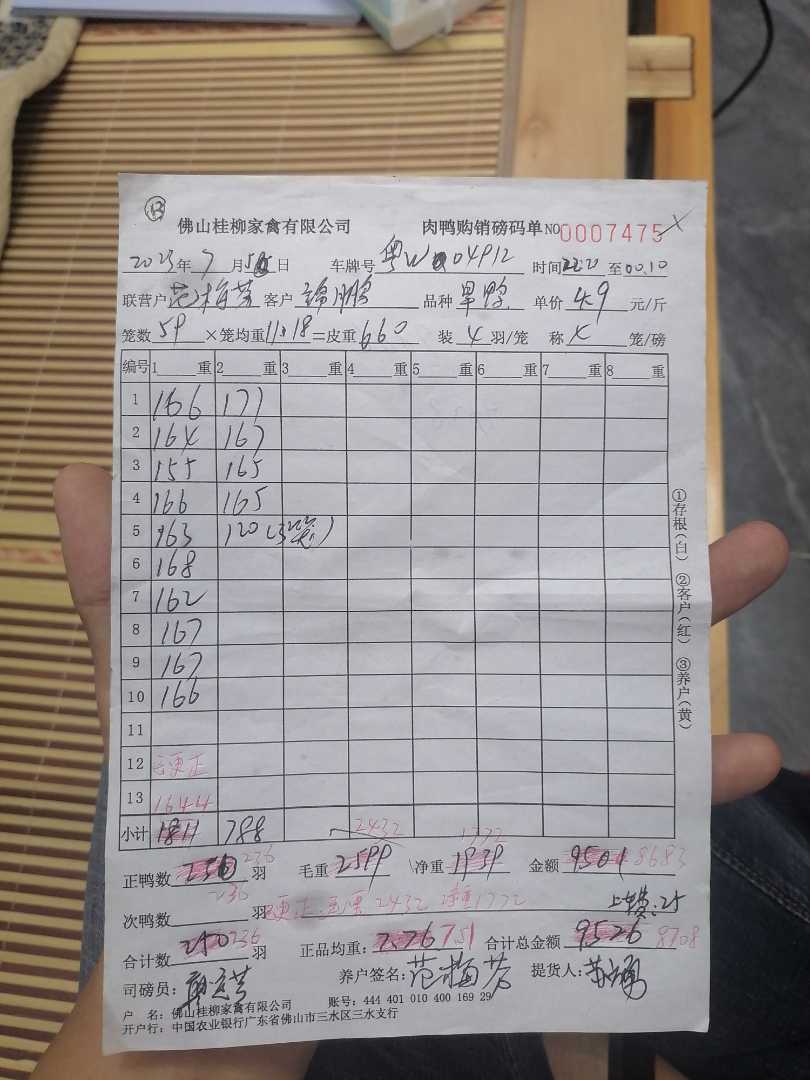 13
佛山桂柳家禽有限公司 肉鸭购销磅码单 NO 0007475
2023年 7 月 5 日 车牌号 粤W 04912 时间 22:20 至 00:10
联营户 范梅芳 客户 锦鹏 品种 旱鸭 单价 4.9 元/斤
笼数 59 ×笼均重 11.18 =皮重 660 装 4 羽/笼 称 4 笼/磅
编号 1 重 2 重 3 重 4 重 5 重 6 重 7 重 8 重
1 166 177
2 164 167
3 155 165
4 166 165
5 163 120 (3笼)
6 168
7 162
8 167
9 167
10 166
11
12 更正
13 1644
小计 1811 788 2432 1772
正鸭数 236 羽 毛重 2599 净重 1939 金额 9501 8683
236
次鸭数 羽 更正 毛重 2432 净重 1772 上车费:25
合计数 240 236 羽 正品均重: 7.51 合计总金额 9526 8708
司磅员: 养户签名: 范梅芳 提货人:
户 名: 佛山桂柳家禽有限公司 账号: 444 401 010 400 169 29
开户行: 中国农业银行广东省佛山市三水区三水支行
①存根(白) ②客户(红) ③养户(黄)